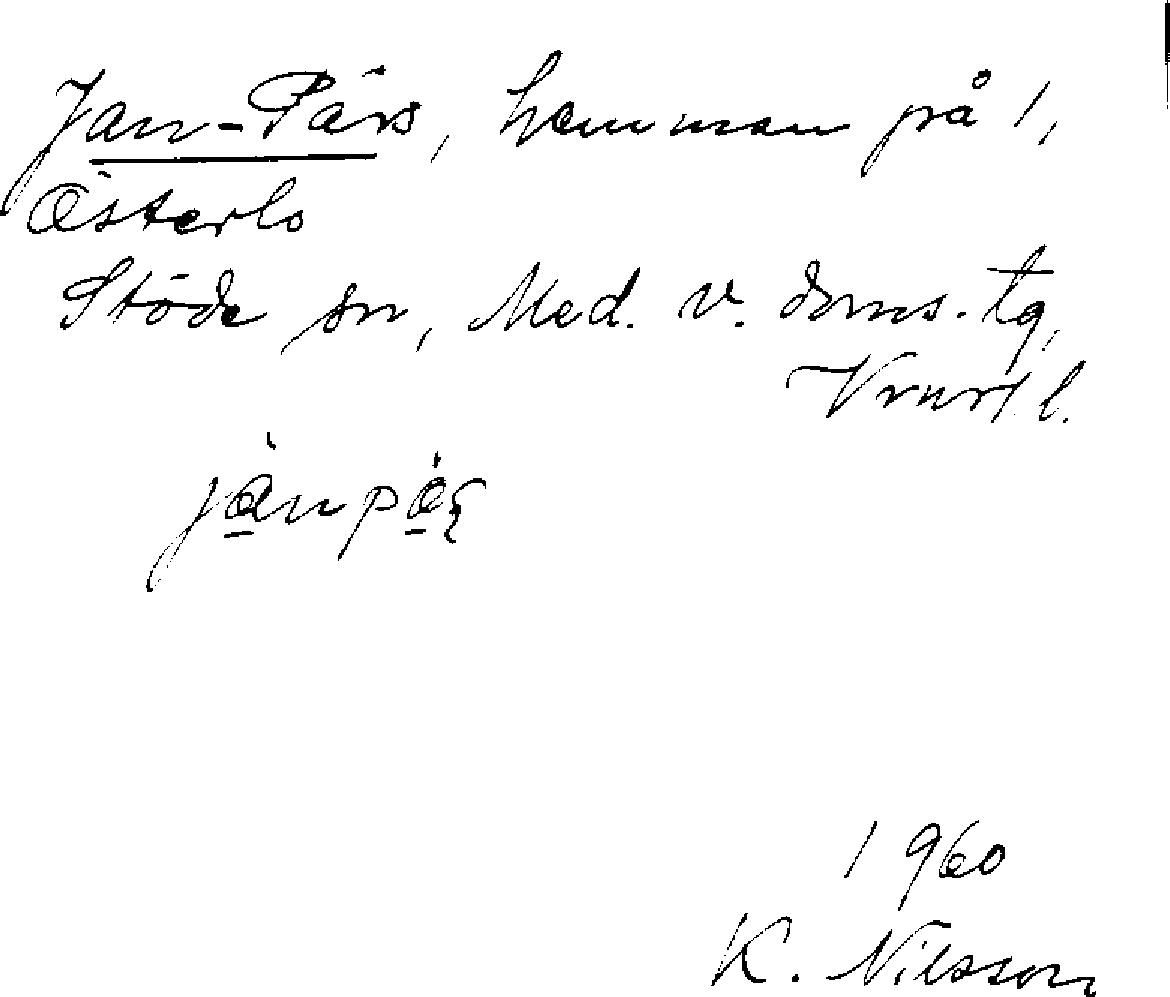 Jan-Pärs, hemman på 1,
Österlo
Stöde sn, Med. v. doms. tg,
Vnrl l.
1960
K. Nilsson